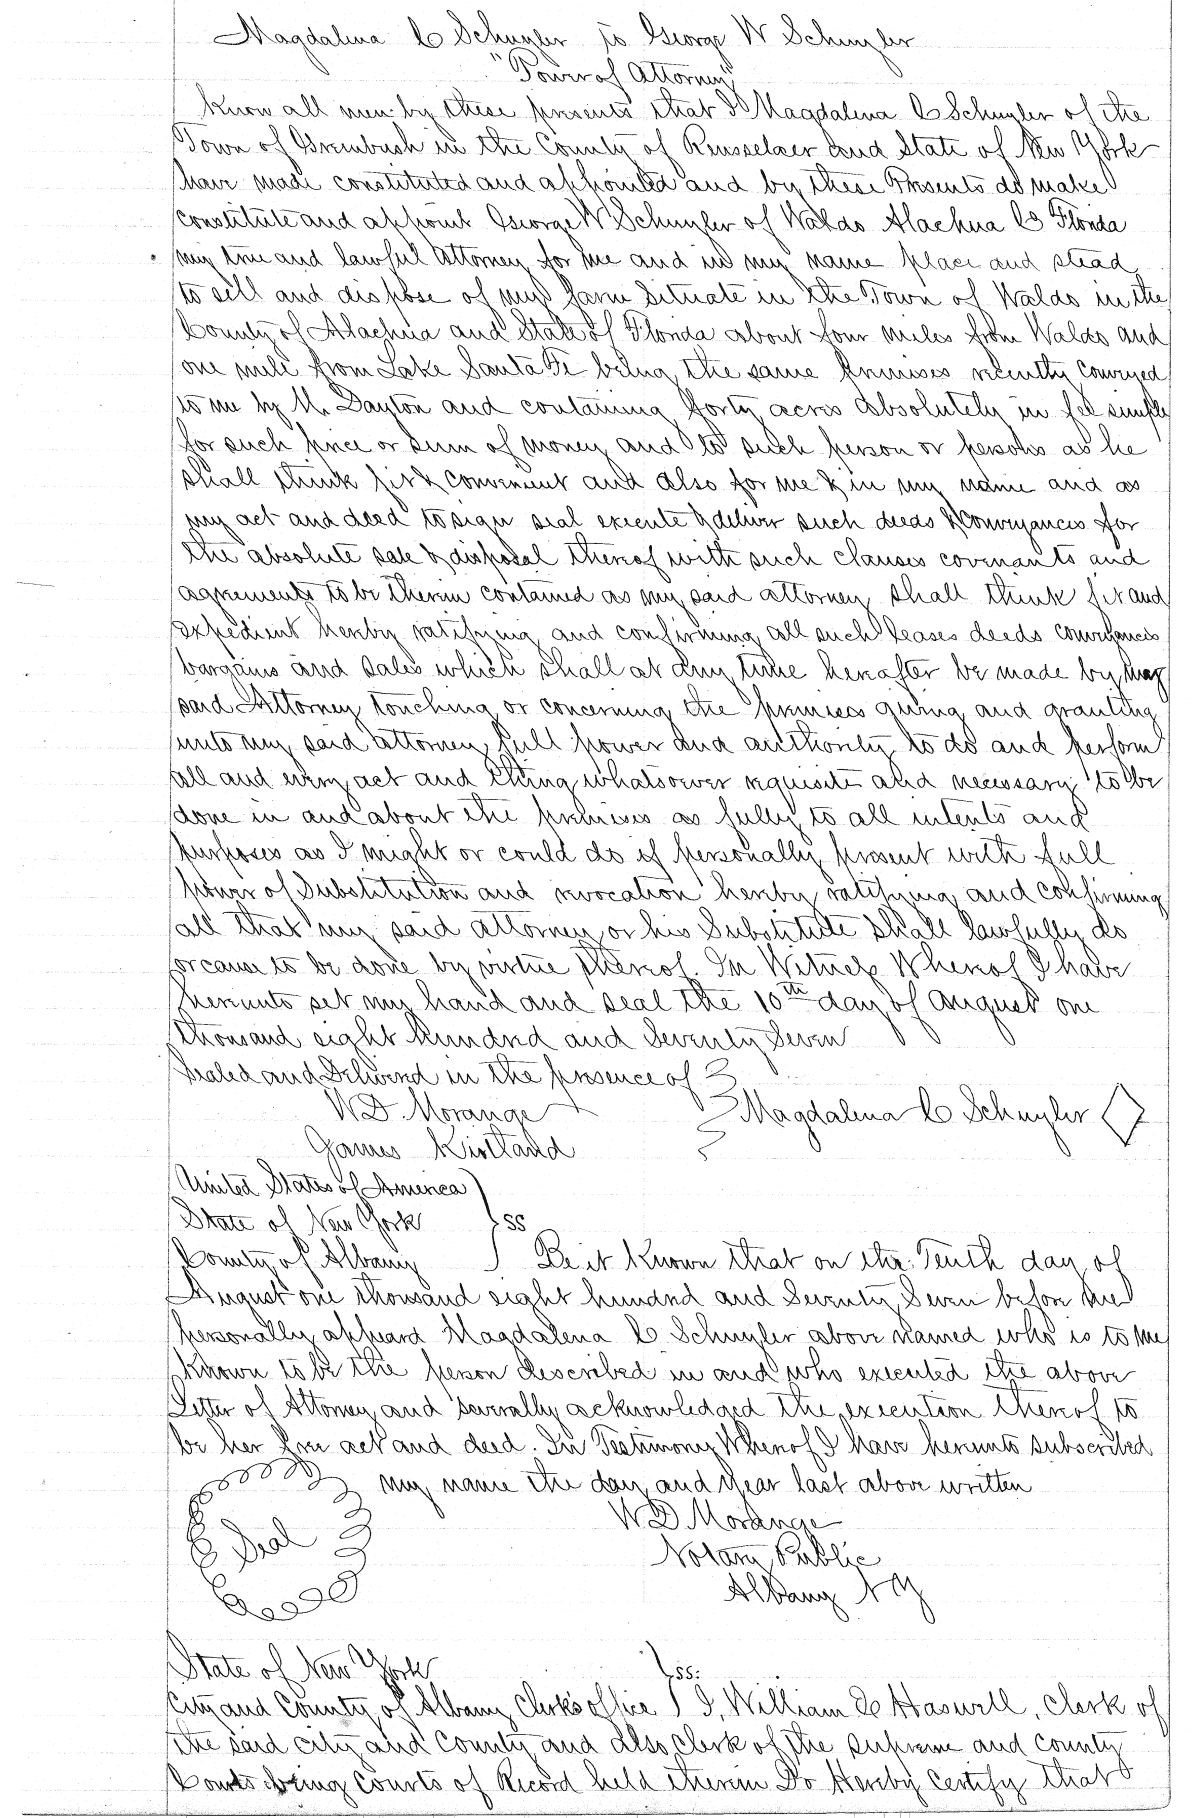 Magdalena C Schuyler to George W Schuyler
"Power of Attorney"
Know all men by these presents that I Magdalena C Schuyler of the
Town of Greenbush in the County of Rensselaer and State of New York
have made constituted and appointed and by these Presents do make
constitute and appoint George W Schuyler of Waldo Alachua Co Florida
my true and lawful Attorney for me and in my name place and stead
to sell and dispose of my farm Situate in the Town of Waldo in the
County of Alachua and State of Florida about four miles from Waldo and
one mile from Lake Santa Fe being the same premises recently conveyed
to me by M. Dayton and containing forty acres absolutely in fee simple
for such price or sum of money and to such person or persons as he
shall think fit & convenient and also for me & in my name and as
my act and deed to sign seal execute & deliver such deeds & Conveyances for
the absolute sale & disposal thereof with such clauses covenants and
agreements to be therein contained as my said attorney shall think fit and
expedient hereby ratifying and confirming all such leases deeds conveyances
bargains and sales which shall at any time hereafter be made by my
said Attorney touching or concerning the premises giving and granting
unto my said attorney full power and authority to do and perform
all and every act and thing whatsoever requisite and necessary to be
done in and about the premises as fully to all intents and
purposes as I might or could do if personally present with full
power of Substitution and revocation hereby ratifying and confirming
all that my said attorney or his Substitute shall lawfully do
or cause to be done by virtue thereof. In Witness Whereof I have
hereunto set my hand and seal the 10th day of August one
thousand eight hundred and Seventy Seven
Sealed and Delivered in the presence of
W D. Morange Magdalena C Schuyler
James Kirtland
United States of America
State of New York ss
County of Albany Be it Known that on the Tenth day of
August one thousand eight hundred and Seventy Seven before me
personally appeard Magdalena C Schuyler above named who is to me
Known to be the person described in and who executed the above
Letter of Attorney and severally acknowledged the execution thereof to
be her free act and deed. In Testimony Whereof I have hereunto subscribed
my name the day and year last above written
W D Morange
Seal
Notary Public
Albany N Y
State of New York ss.
City and County of Albany Clerk's office I, William E Haswell, Clerk of
the said city and County and also Clerk of the supreme and county
Courts being Courts of Record held therein Do Hereby Certify that